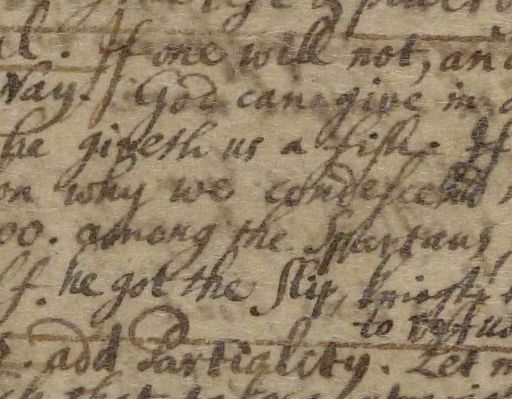 l. If one will not, an
Nay. God can give in
he giveth us a fish. If
on why we condescend
oo. among the Spartans,
lf. he got the Slip,
to refus
add Partiality. Let m